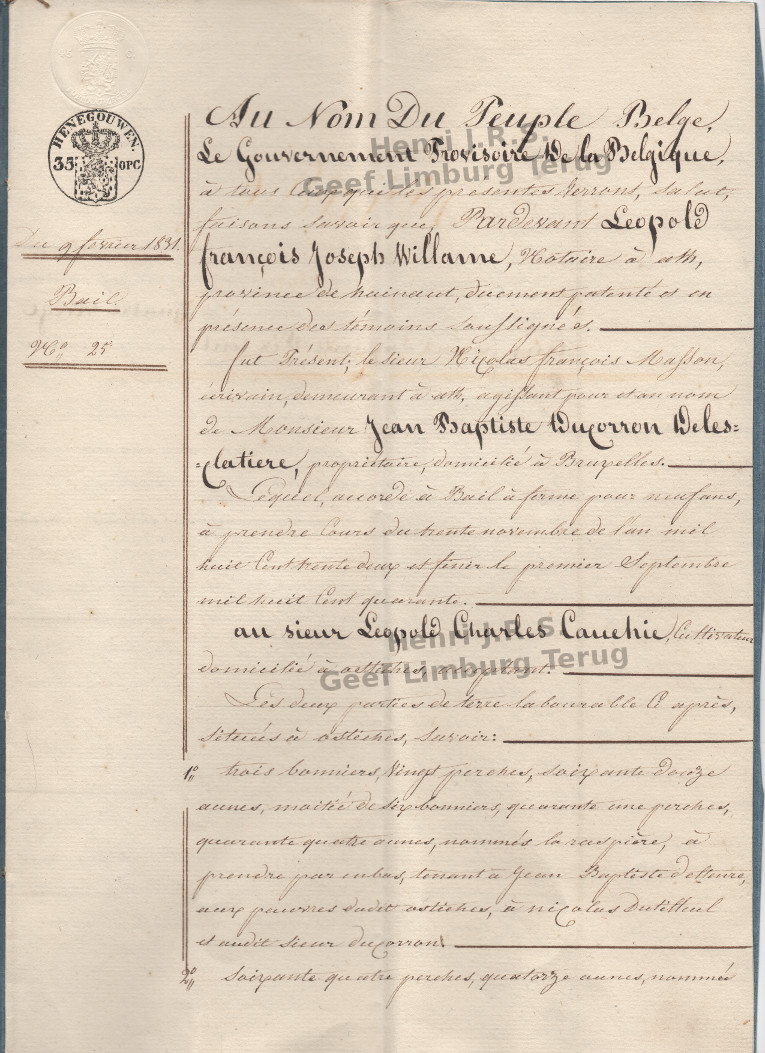 HENEGOUWEN.
35 OPC
Du 9 février 1831.
Bail
N.o 25
Au Nom Du Peuple Belge,
Le Gouvernement Provisoire De la Belgique,
à tous ceux que les présentes verront, salut,
faisons savoir que, Pardevant Léopold
françois Joseph Willame, Notaire à ath,
province de hainaut, duement patenté et en
présence des témoins soussignés.
fut Présent; le sieur Nicolas françois Masson,
écrivain, demeurant à ath, agissant pour et au nom
de Monsieur Jean Baptiste Ducorron Deles=
=clatiere, propriétaire, domicilié à Bruxelles.
Lequel, accorde à Bail à ferme pour neuf ans,
à prendre Cours du trente novembre de l'an mil
huit Cent trente deux et finir le premier Septembre
mil huit Cent quarante.
au sieur Léopold Charles Cauchie, Cultivateur
domicilié à ostiches, acceptant.
Les deux parties de terre labourable Ci après,
situées à ostiches, savoir:
1.o trois bonniers, Vingt perches, soixante douze
aunes, moitié de six bonniers, quarante une perches,
quarante quatre aunes, nommés la raspière, à
prendre par enbas, tenant à Jean Baptiste
aux pauvres dudit ostiches, à nicolas Dutilleul
et audit sieur ducorron.
2.o soixante quatre perches, quatorze aunes, nommés
Henri J.R.S.
Geef Limburg Terug
Henri J.R.S.
Geef Limburg Terug